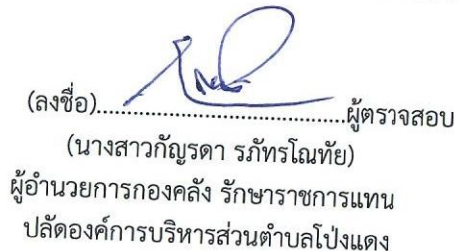 (ลงชื่อ)..........................................ผู้ตรวจสอบ
(นางสาวกัญรดา รภัทรโณทัย)
ผู้อำนวยการกองคลัง รักษาราชการแทน
ปลัดองค์การบริหารส่วนตำบลโป่งแดง